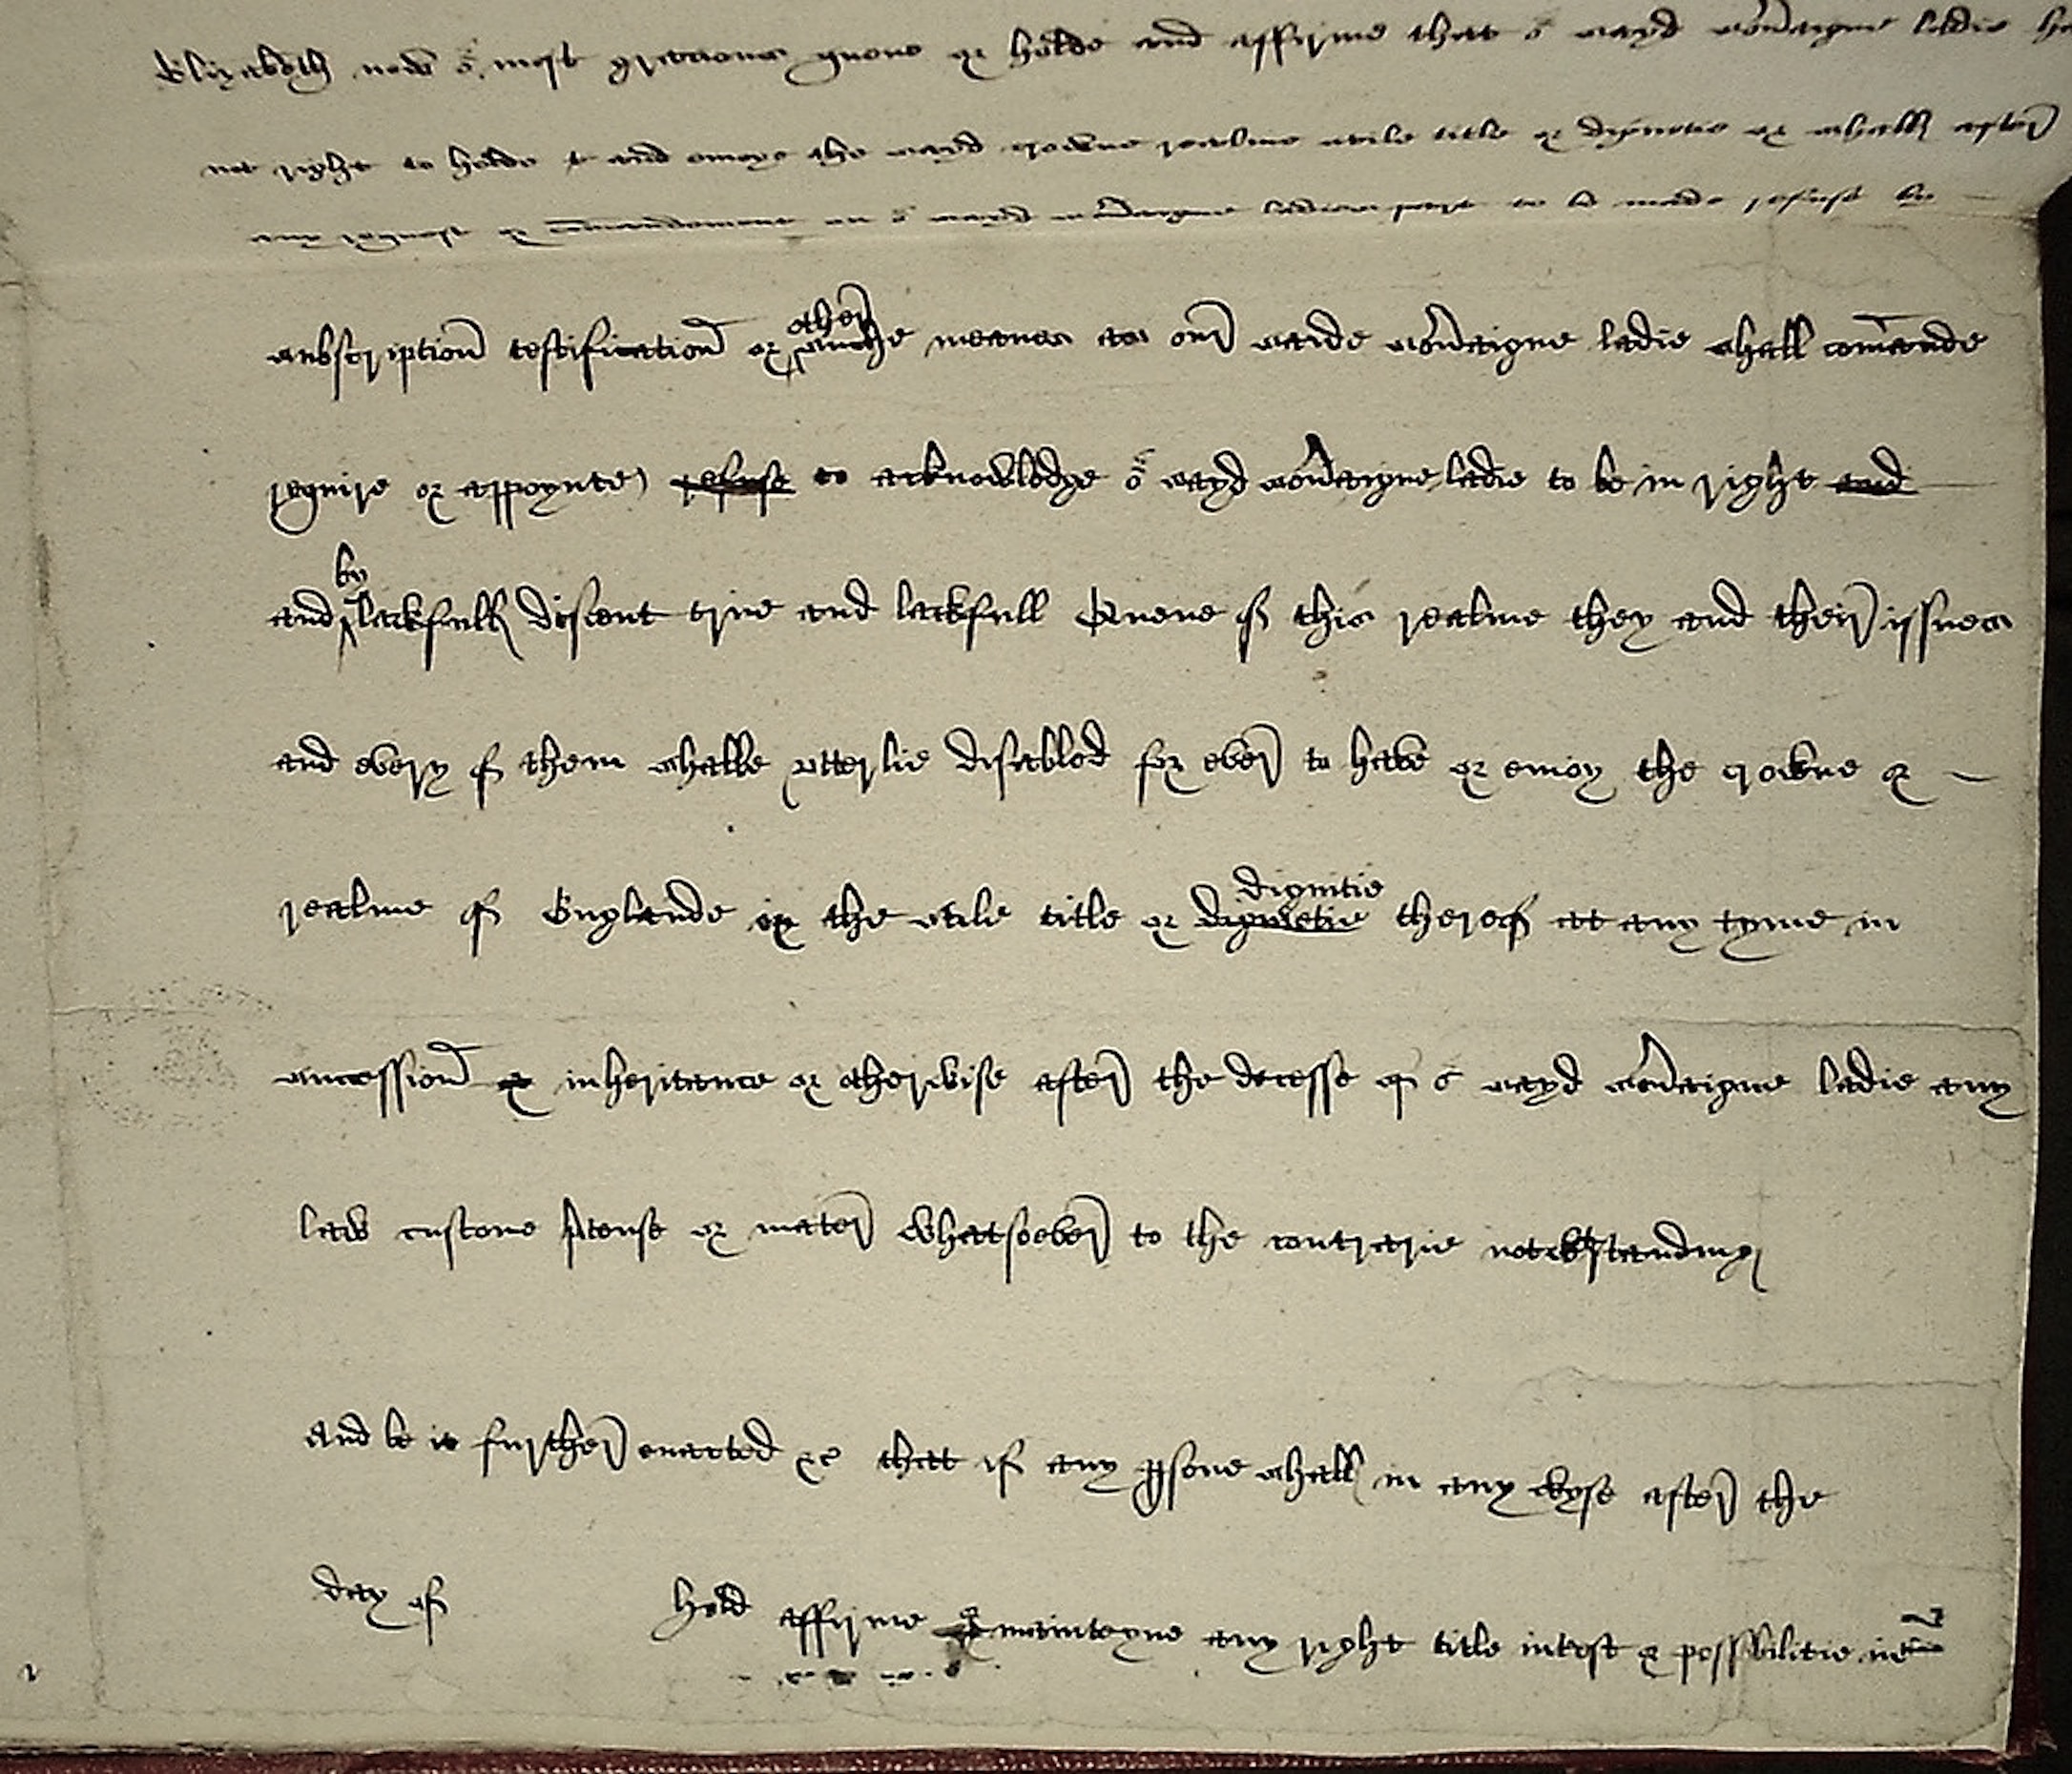 Elizabeth now oʳ most gracious quene or holde and affirme that oʳ sayd sov'aigne ladie ha
not right to holde & and enioye the sayd crowne realme stile title or dignitie or shall after
any request or com̄andement on oʳ sayd sov'aigne ladies part to be made refuse by
subscription testification or other suche meanes as our saide sov'aigne ladie shall com̄ande
require or appoynte refuse to acknowledge oʳ sayd sov'aigne ladie to be in right and
and by lawfull discent true and lawfull Quene of this realme they and their issues
and every of them shalbe vtterlie disabled for ever to have or enioy the crowne or
realme of Englande or the stile title or dignitie dignitie therof at any tyme in
succession or inheritance or otherwise after the decesse of oʳ sayd sov'aigne ladie any
law custome p'tense or mater whatsoever to the contrarie notwithstanding
And be it further enacted &c that if any p̱sone shall in any wyse after the
day of hold affirme or mainteyne any right title int'est or possibilitie in